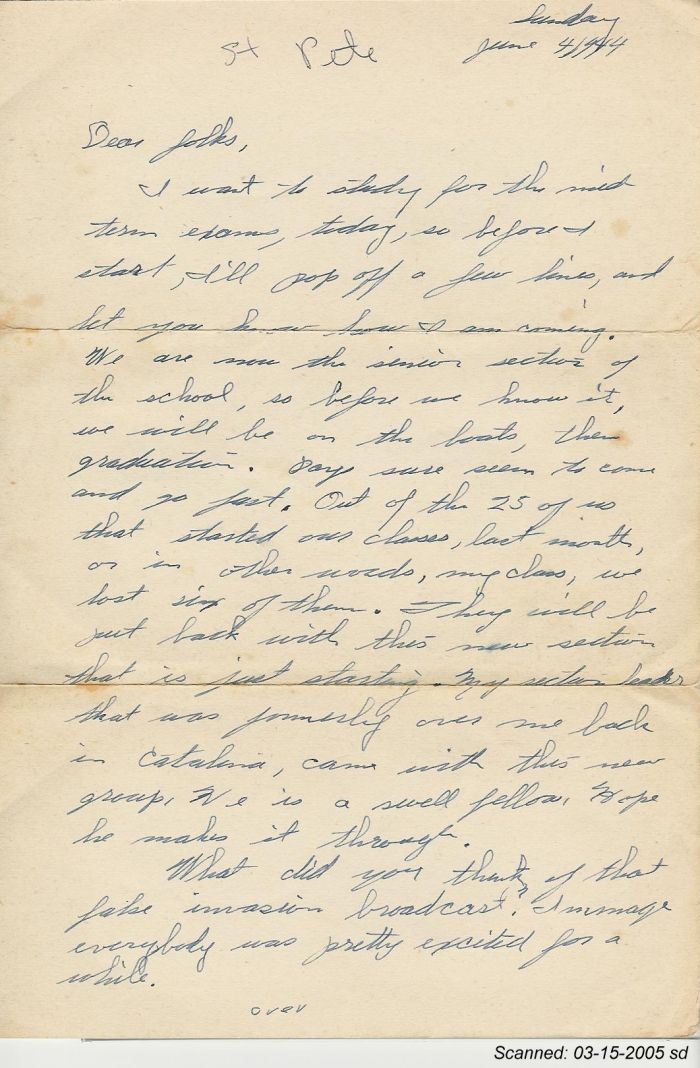 Sunday
St Pete
June 4, 1944
Dear folks,
I want to study for the mid
term exams, today, so before I
start, I'll pop off a few lines, and
let you know how I am coming.
We are now the senior section of
the school, so before we know it,
we will be on the boats, then
graduation. Days sure seem to come
and go fast. Out of the 25 of us
that started our classes, last month,
or in other words, my class, we
lost six of them. They will be
put back with this new section
that is just starting. My section leader
that was formerly over me back
in Catalina, came with this new
group. He is a swell fellow. Hope
he makes it through.
What did you think of that
fake invasion broadcast? Immage
everybody was pretty excited for a
while.
over
Scanned: 03-15-2005 sd